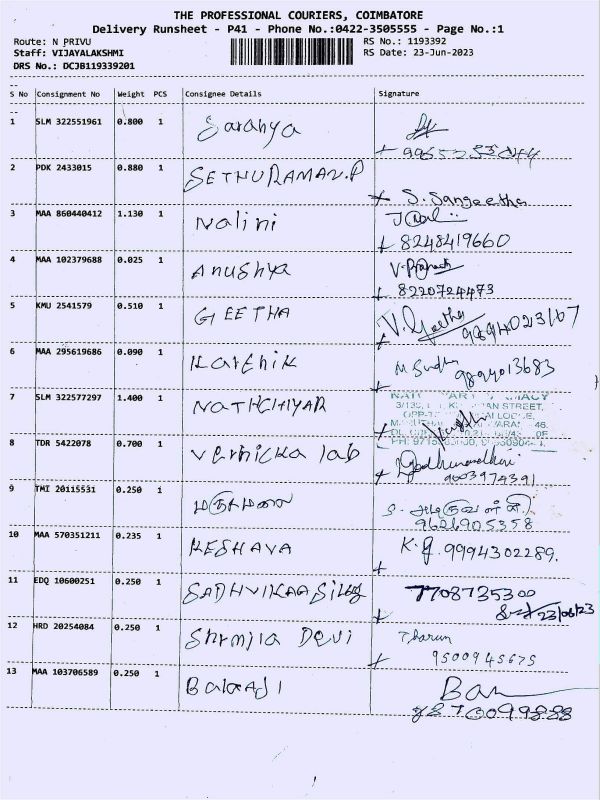 THE PROFESSIONAL COURIERS, COIMBATORE
Delivery Runsheet - P41 - Phone No.:0422-3505555 - Page No.:1
Route: N PRIVU RS No.: 1193392
Staff: VIJAYALAKSHMI RS Date: 23-Jun-2023
DRS No.: DCJB119339201
S No Consignment No Weight PCS Consignee Details Signature
1 SLM 322551961 0.800 1 Saranya
2 PDK 2433015 0.880 1 SETHURAMAN.P
S. Sangeetha
3 MAA 860440412 1.130 1 Nalini
8248419660
4 MAA 102379688 0.025 1 Anushya
8220724473
5 KMU 2541579 0.510 1 GEETHA V. Geetha
9894023167
6 MAA 295619686 0.090 1 Karthik
9894013683
7 SLM 322577297 1.400 1 NATHCHIYAR
STREET,
8 TDR 5422078 0.700 1 vernicka lab
9003974391
9 TMI 20115531 0.250 1
9626905358
10 MAA 570351211 0.235 1 KESHAVA 9994302289.
11 EDQ 10600251 0.250 1 7708735300
23/06/23
12 HRD 20254084 0.250 1 Devi Tharun
9500945675
13 MAA 103706589 0.250 1 Balaadi